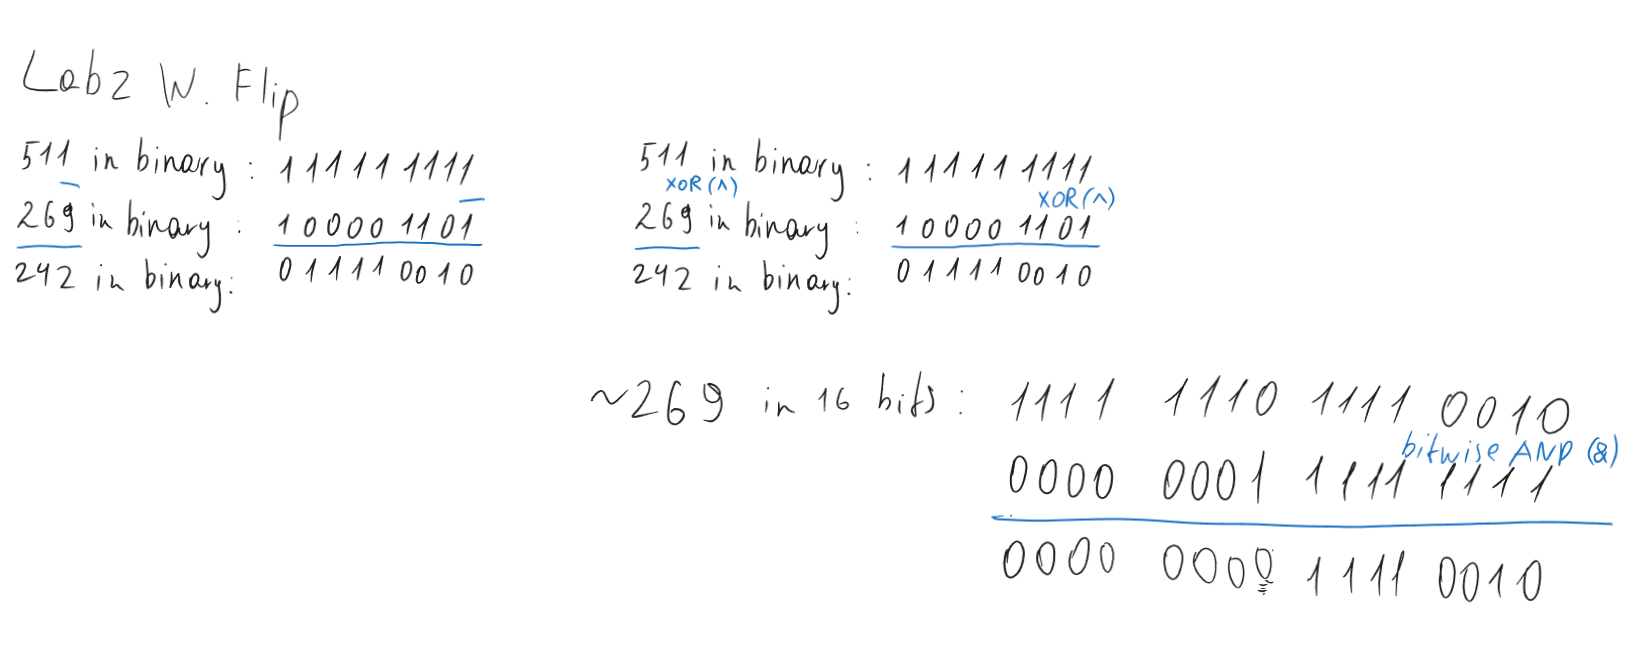 Lab2 W. Flip
511 in binary : 111111111
269 in binary : 100001101
242 in binary: 011110010
511 in binary : 111111111
XOR(^) XOR(^)
269 in binary : 100001101
242 in binary: 011110010
~269 in 16 bits : 1111 1110 1111 0010
bitwise AND (&)
0000 0001 1111 1111
0000 0000 1111 0010